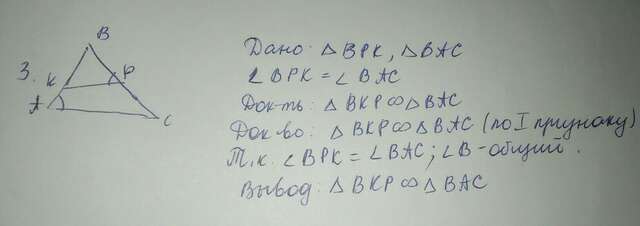 3.
B
K
P
A
C
Дано: △ BPK, △ BAC
∠ BPK = ∠ BAC
Док-ть: △ BKP ∞ △ BAC
Док-во: △ BKP ∞ △ BAC (по I признаку)
Т.к. ∠ BPK = ∠ BAC; ∠B - общий.
Вывод: △ BKP ∞ △ BAC